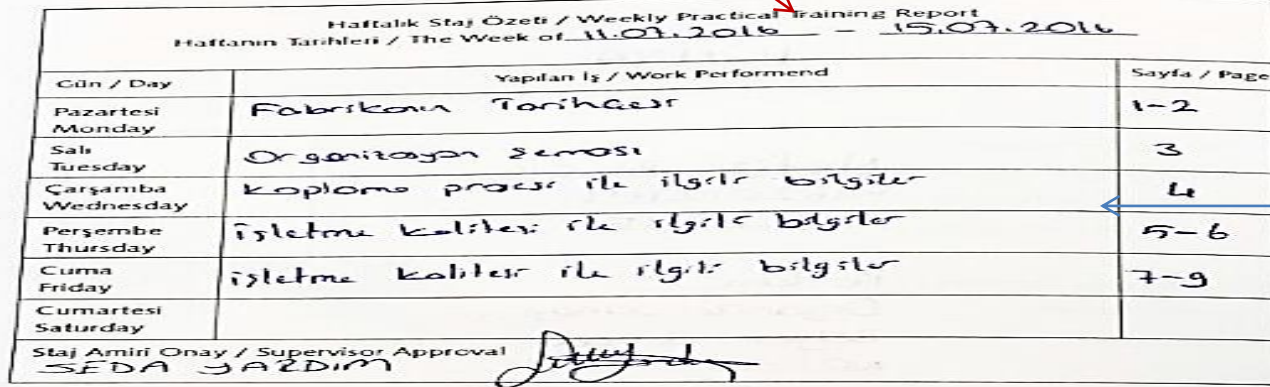 Haftalık Staj Özeti / Weekly Practical Training Report
Haftanın Tarihleri / The Week of 11.07.2016 – 15.07.2016
Gün / Day Yapılan İş / Work Performend Sayfa / Page
Pazartesi Fabrikanın Tarihçesi 1-2
Monday
Salı Organizasyon Şeması 3
Tuesday
Çarşamba Kaplama prosesi ile ilgili bilgiler 4
Wednesday
Perşembe İşletme kalitesi ile ilgili bilgiler 5-6
Thursday
Cuma işletme kalitesi ile ilgili bilgiler 7-9
Friday
Cumartesi
Saturday
Staj Amiri Onay / Supervisor Approval
SEDA YAZDIM